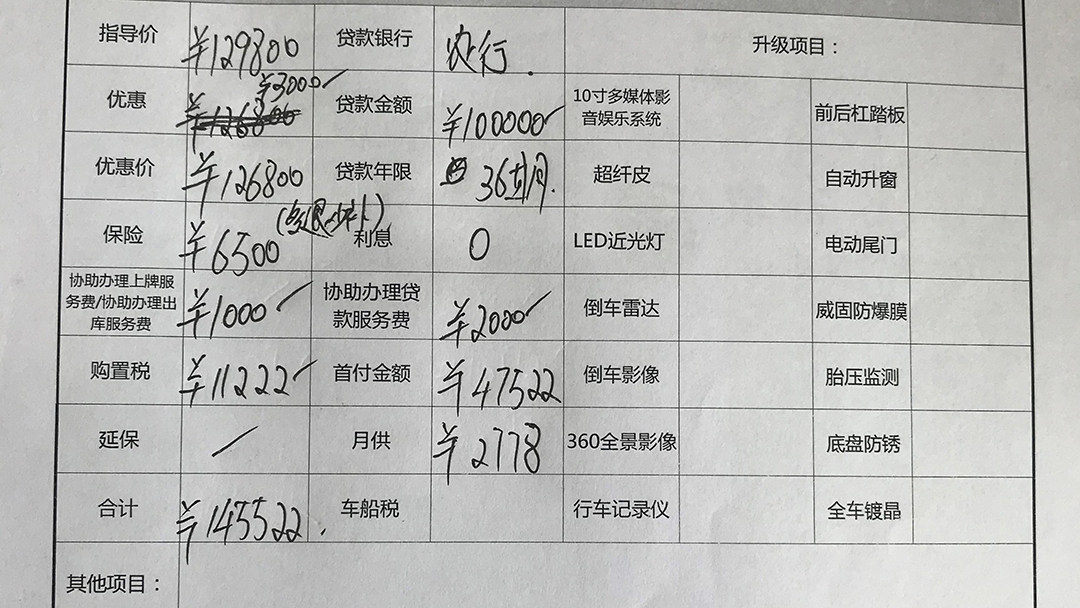 指导价 ¥129800 贷款银行 农行. 升级项目：
优惠 ¥3000 贷款金额 ¥100000 10寸多媒体影音娱乐系统 前后杠踏板
优惠价 ¥126800 贷款年限 36期. 超纤皮 自动升窗
保险 ¥6500 (多退少补) 利息 0 LED近光灯 电动尾门
协助办理上牌服
务费/协助办理出
库服务费 ¥1000 协助办理贷
款服务费 ¥2000 倒车雷达 威固防爆膜
购置税 ¥11222 首付金额 ¥47522 倒车影像 胎压监测
延保 / 月供 ¥2778 360全景影像 底盘防锈
合计 ¥145522. 车船税 行车记录仪 全车镀晶
其他项目：